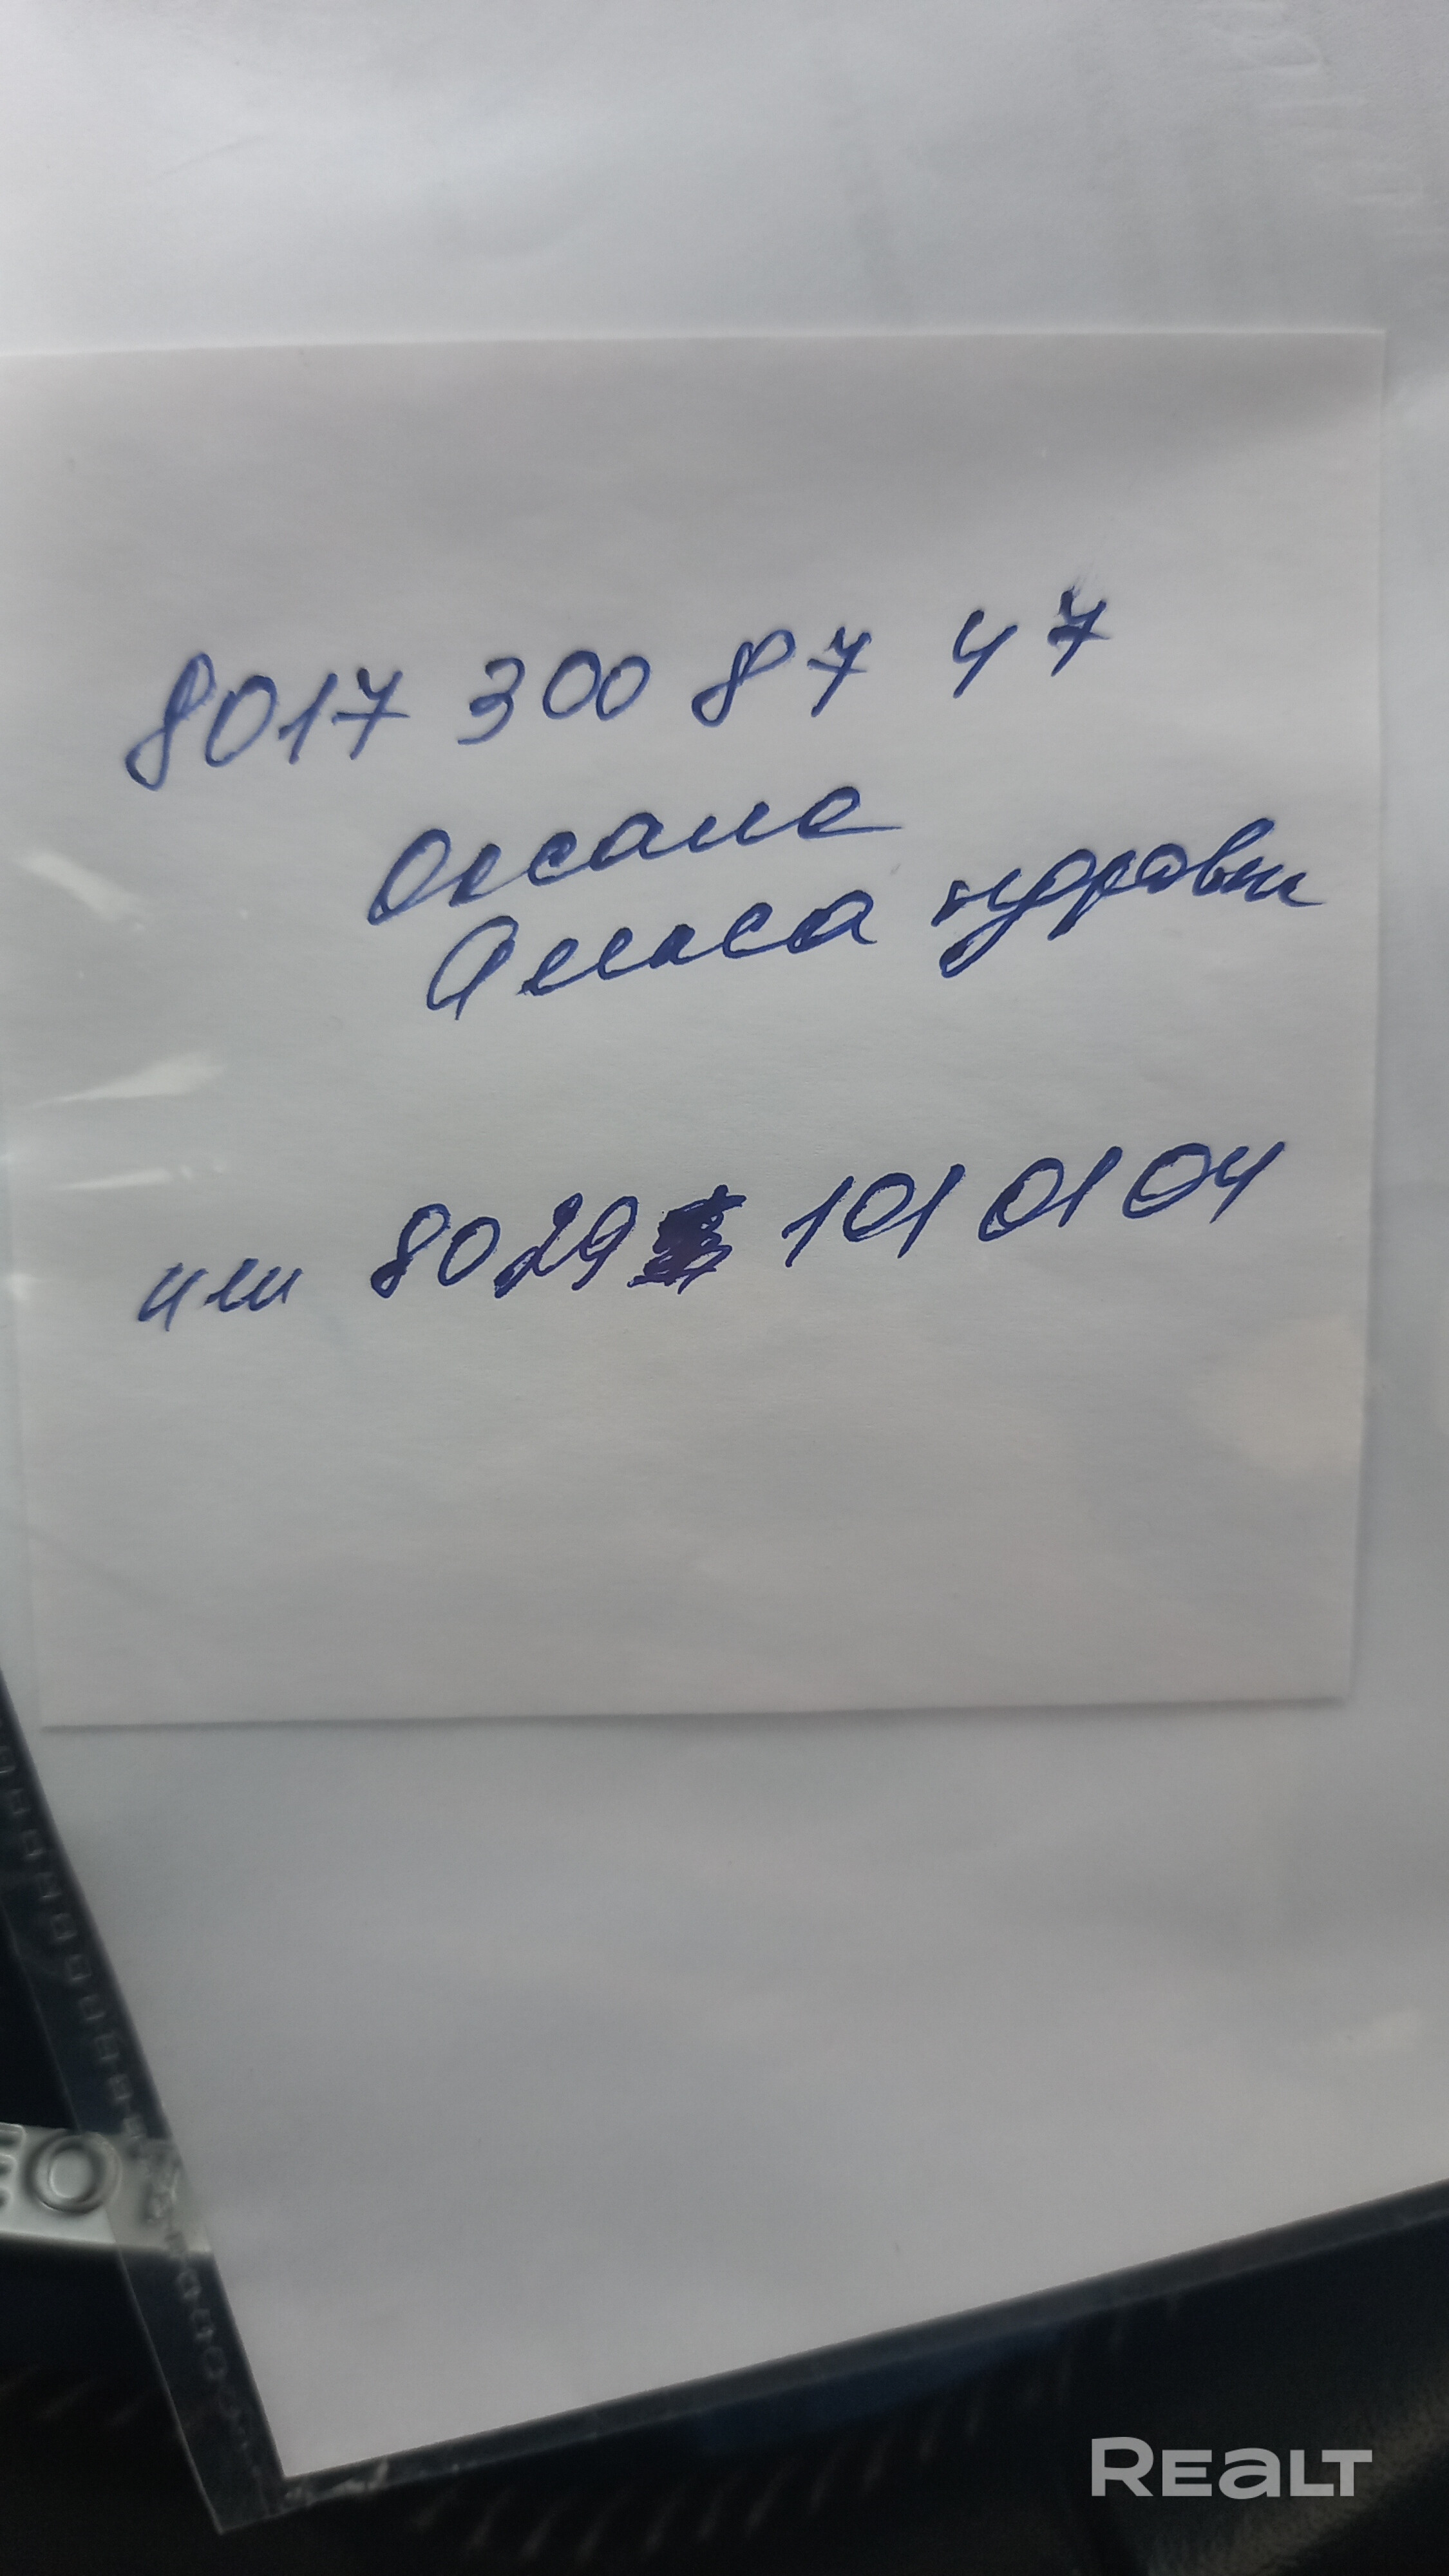 8017 300 87 47
Оксана
Алиса
или 8029 101 01 04
REALT